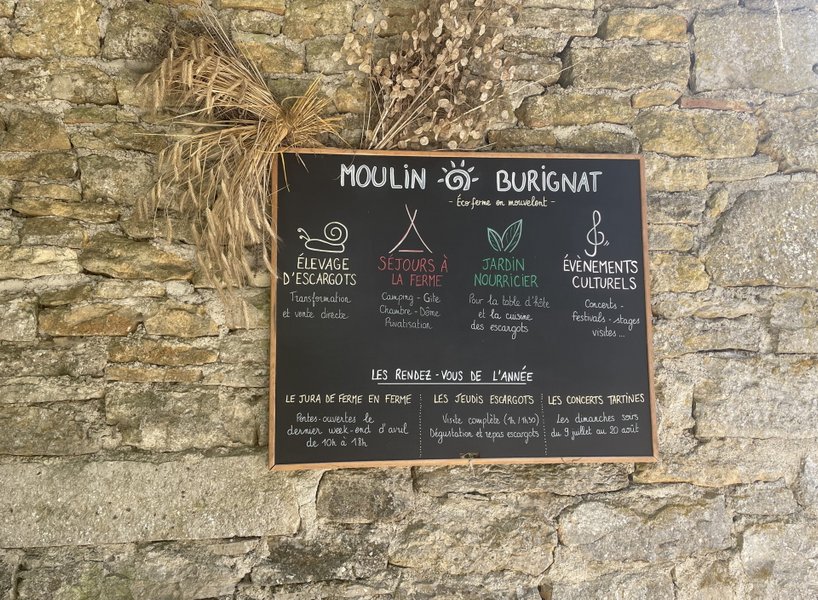 MOULIN BURIGNAT
- Éco ferme en mouvement -
ÉLEVAGE
D'ESCARGOTS
Transformation
et vente directe
SÉJOURS À
LA FERME
Camping - Gîte
Chambre - Dôme
Privatisation
JARDIN
NOURRICIER
Pour la table d'hôte
et la cuisine
des escargots
ÉVÈNEMENTS
CULTURELS
Concerts -
festivals - stages
visites ...
LES RENDEZ-VOUS DE L'ANNÉE
LE JURA DE FERME EN FERME
Portes-ouvertes le
dernier week-end d'avril
de 10h à 18h
LES JEUDIS ESCARGOTS
Visite complète (1h/1h30)
Dégustation et repas escargots
LES CONCERTS TARTINES
Les dimanches soirs
du 9 juillet au 20 août